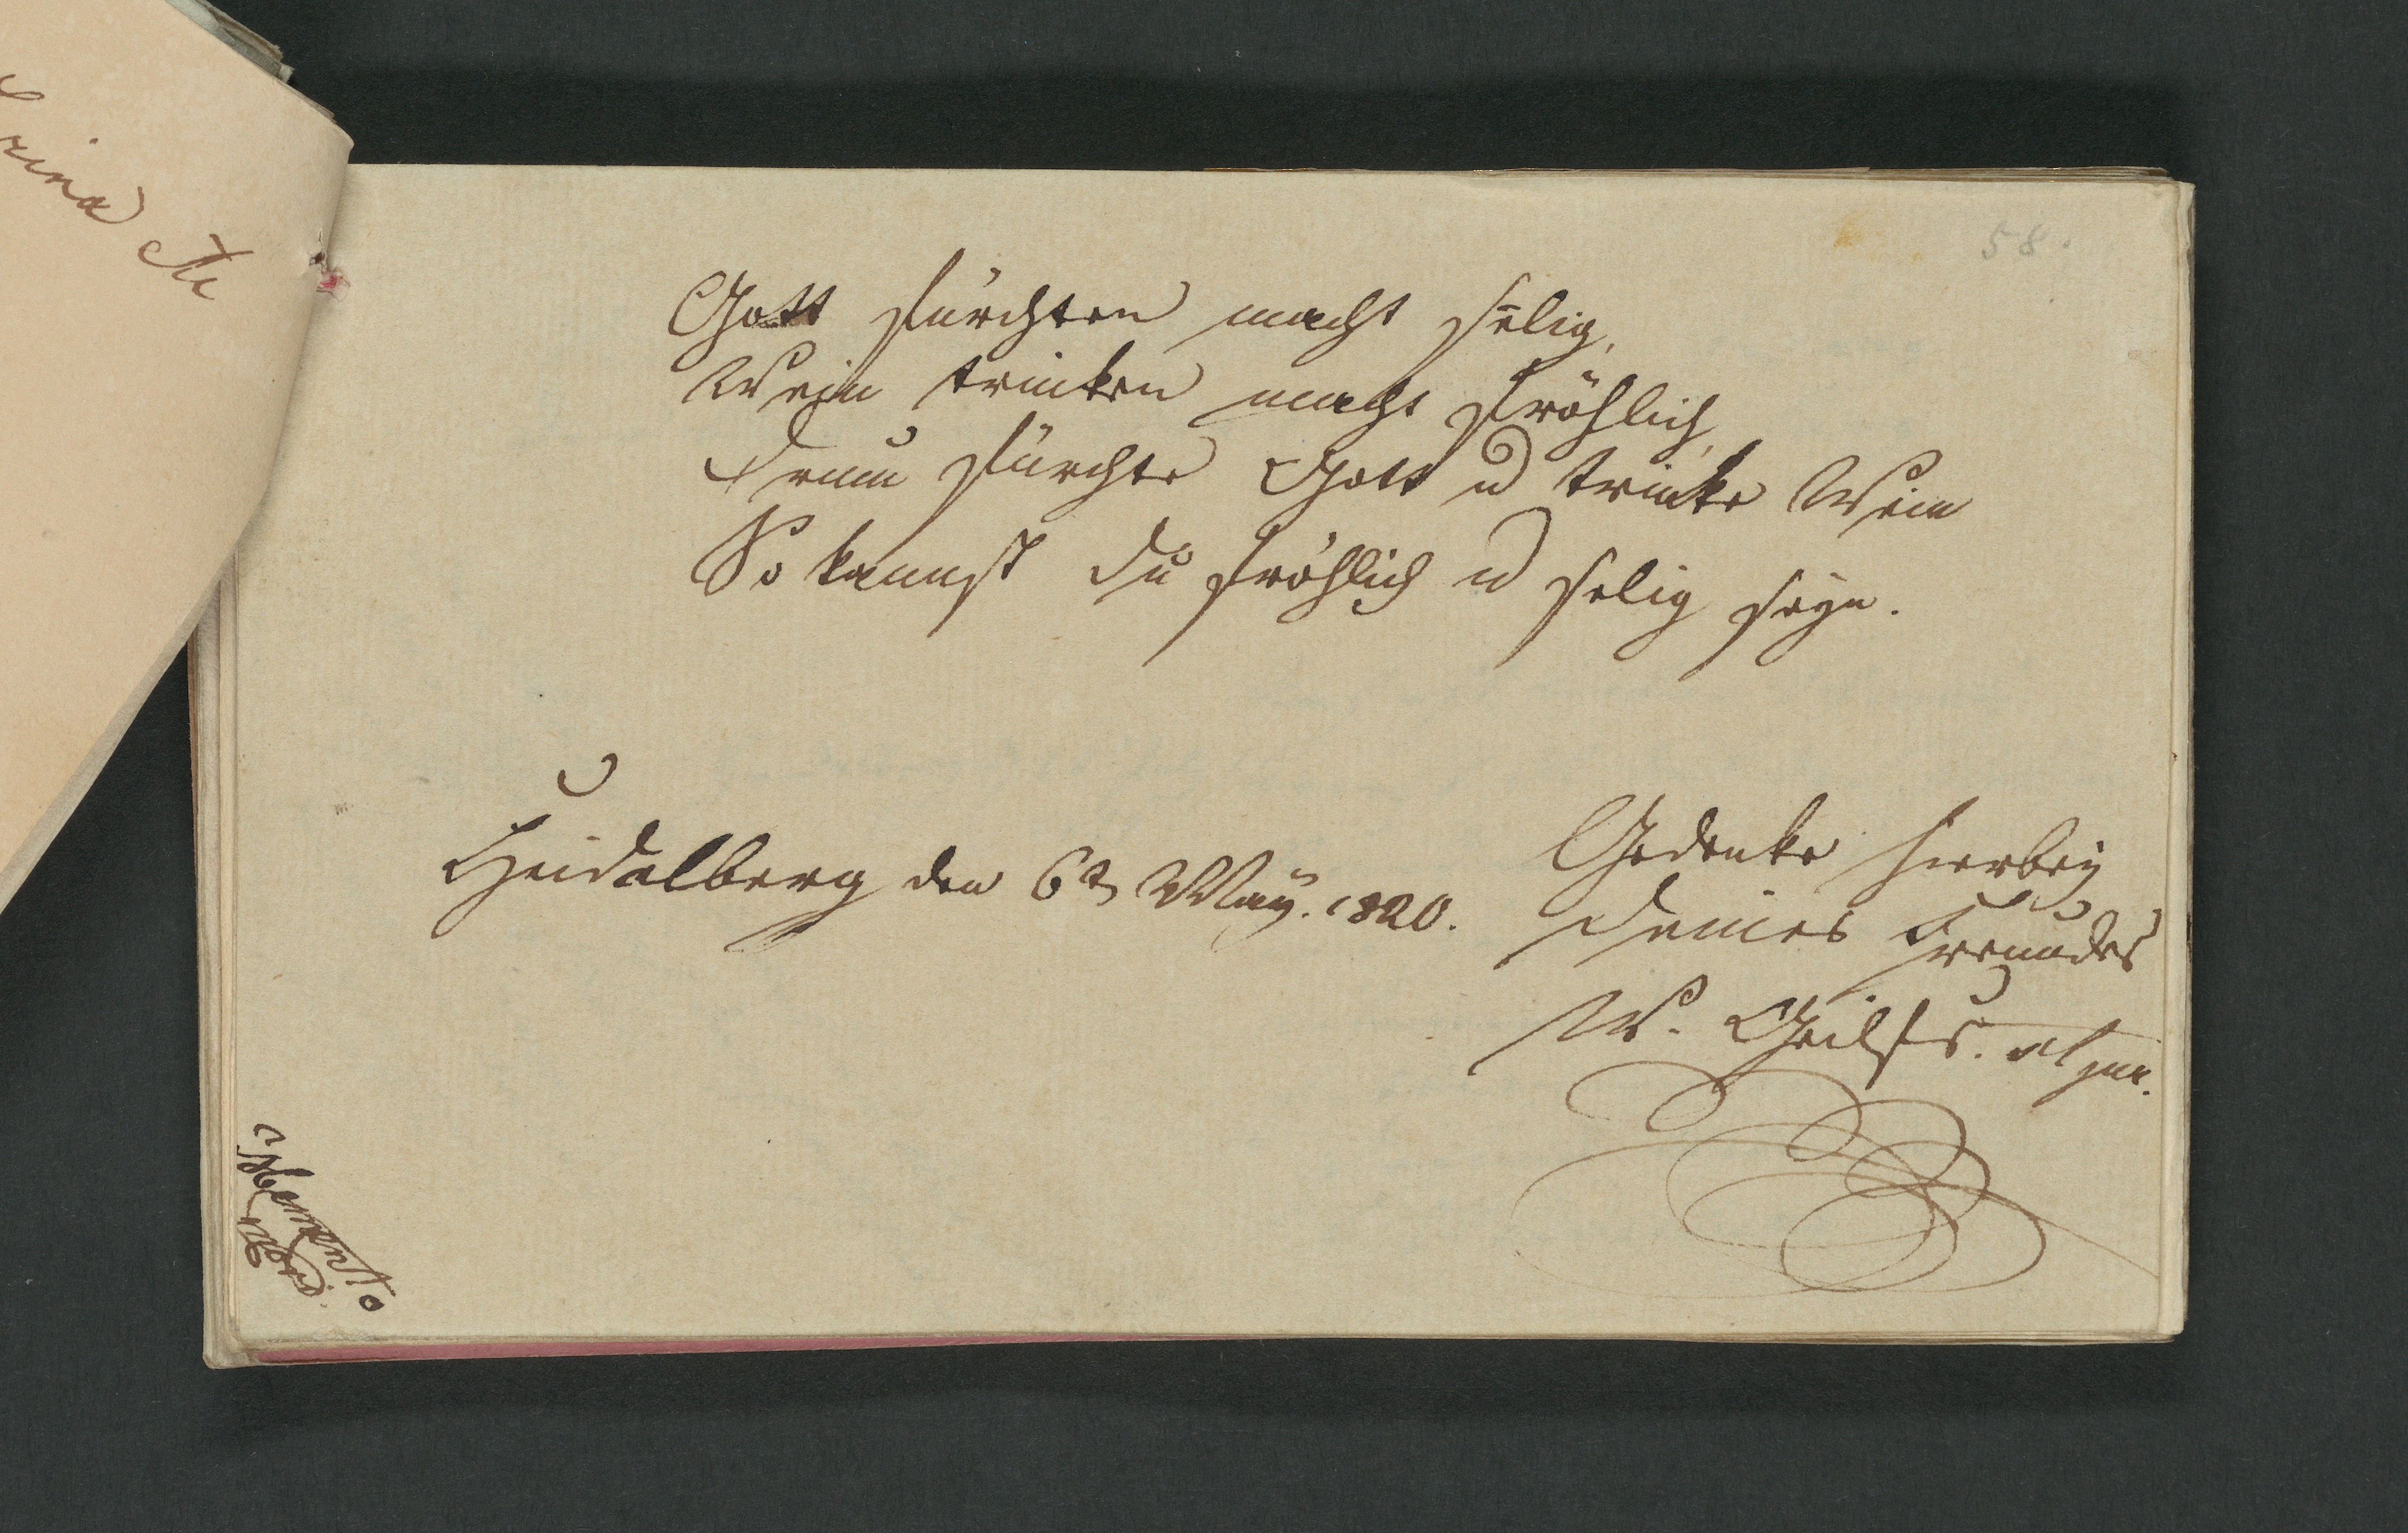 58.
Gott fürchten macht selig,
Wein trinken macht fröhlich,
Drum fürchte Gott u trinke Wein
So kannst du fröhlich u selig seyn.
Heidelberg den 6t May. 1820.
Gedenke hierbey
deines Freundes
W.
Memento
mori.
rina